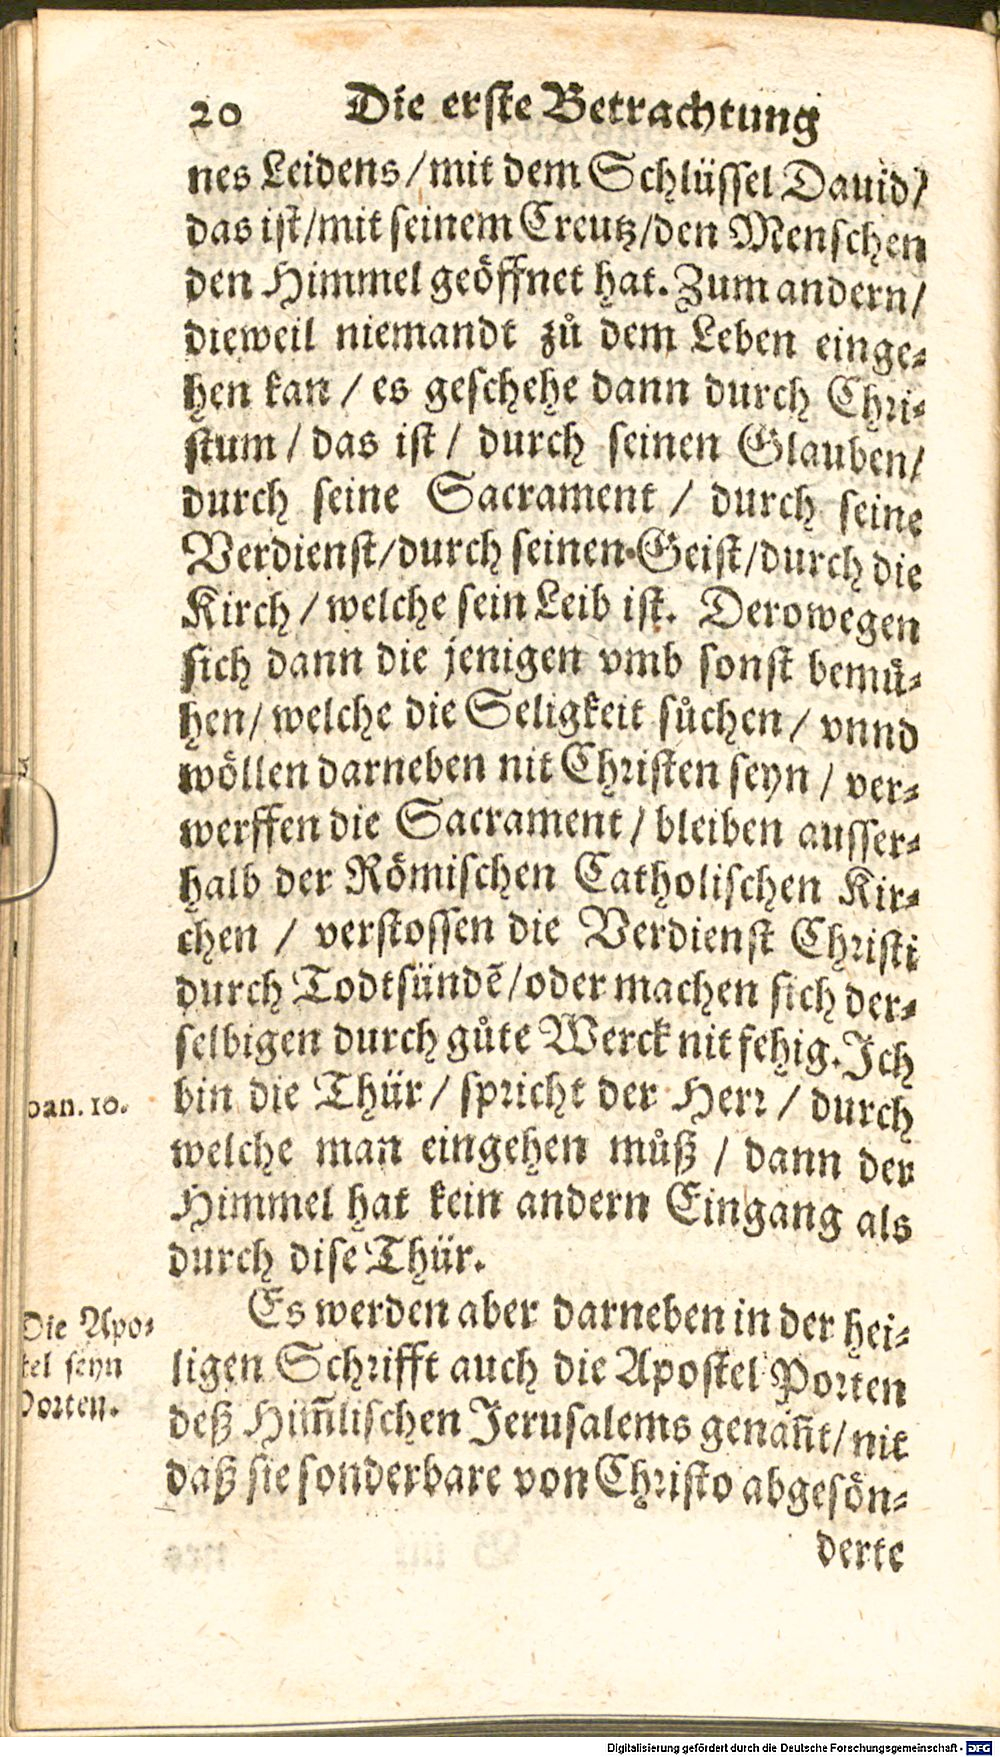 20 Die erste Betrachtung
nes Leidens / mit dem Schlüssel Dauid /
das ist / mit seinem Creutz / den Menschen
den Himmel geöffnet hat. Zum andern /
dieweil niemandt zů dem Leben einge-
hen kan / es geschehe dann durch Chri-
stum / das ist / durch seinen Glauben /
durch seine Sacrament / durch seine
Verdienst / durch seinen Geist / durch die
Kirch / welche sein Leib ist. Derowegen
sich dann die jenigen vmb sonst bemü-
hen / welche die Seligkeit sůchen / vnnd
wöllen darneben nit Christen seyn / ver-
werffen die Sacrament / bleiben ausser-
halb der Römischen Catholischen Kir-
chen / verstossen die Verdienst Christi
durch Todtsündẽ / oder machen sich der-
selbigen durch gůte Werck nit fehig. Ich
bin die Thür / spricht der Herr / durch
oan. 10.
welche man eingehen můß / dann der
Himmel hat kein andern Eingang als
durch dise Thür.
Es werden aber darneben in der hei-
Die Apo-
tel seyn
Porten.
ligen Schrifft auch die Apostel Porten
deß Him̃lischen Jerusalems genañt / nit
daß sie sonderbare von Christo abgesön-
derte
Digitalisierung gefördert durch die Deutsche Forschungsgemeinschaft - DFG